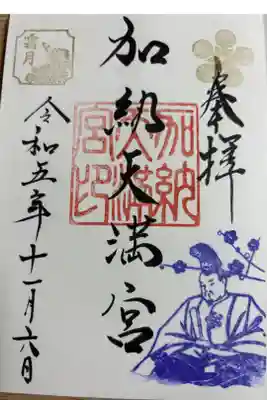 奉拝
加納天満宮
加納
天満
宮印
霜月
令和五年十一月六日